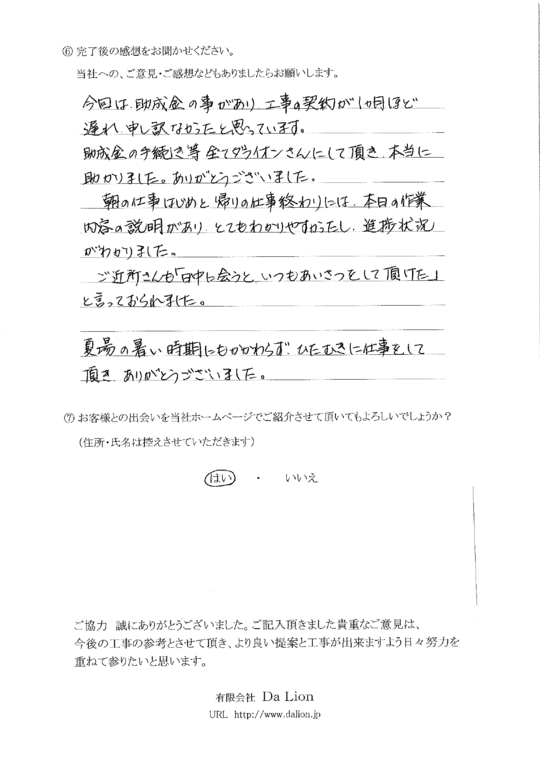 ⑥ 完了後の感想をお聞かせください。
当社への、ご意見・ご感想などもありましたらお願いします。
今回は、助成金の事があり、工事の契約が1ヵ月ほど
遅れ、申し訳なかったと思っています。
助成金の手続き等 全てダライオンさんにして頂き、本当に
助かりました。ありがとうございました。
朝の仕事はじめと、帰りの仕事終わりには、本日の作業
内容の説明があり、とてもわかりやすかったし、進捗状況
がわかりました。
ご近所さんも「日中に会うと、いつもあいさつをして頂けた」
と言っておられました。
夏場の暑い時期にもかかわらず、ひたむきに仕事をして
頂き、ありがとうございました。
⑦ お客様との出会いを当社ホームページでご紹介させて頂いてもよろしいでしょうか？
（住所・氏名は控えさせていただきます）
はい ・ いいえ
ご協力 誠にありがとうございました。ご記入頂きました貴重なご意見は、
今後の工事の参考とさせて頂き、より良い提案と工事が出来ますよう日々努力を
重ねて参りたいと思います。
有限会社 Da Lion
URL http://www.dalion.jp